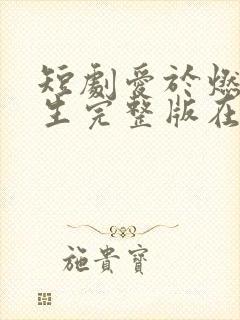 短劇愛於燃
生完整版在
施貴寶